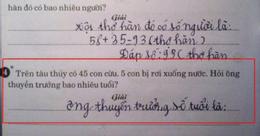 hàn đó có bao nhiêu người?
Giải
đội thợ hàn đó có số người là:
58 + 35 = 93 (thợ hàn)
Đáp số: 93 thợ hàn
Trên tàu thủy có 45 con cừu. 5 con bị rơi xuống nước. Hỏi ông
thuyền trưởng bao nhiêu tuổi?
Giải
ông thuyền trưởng số tuổi là: